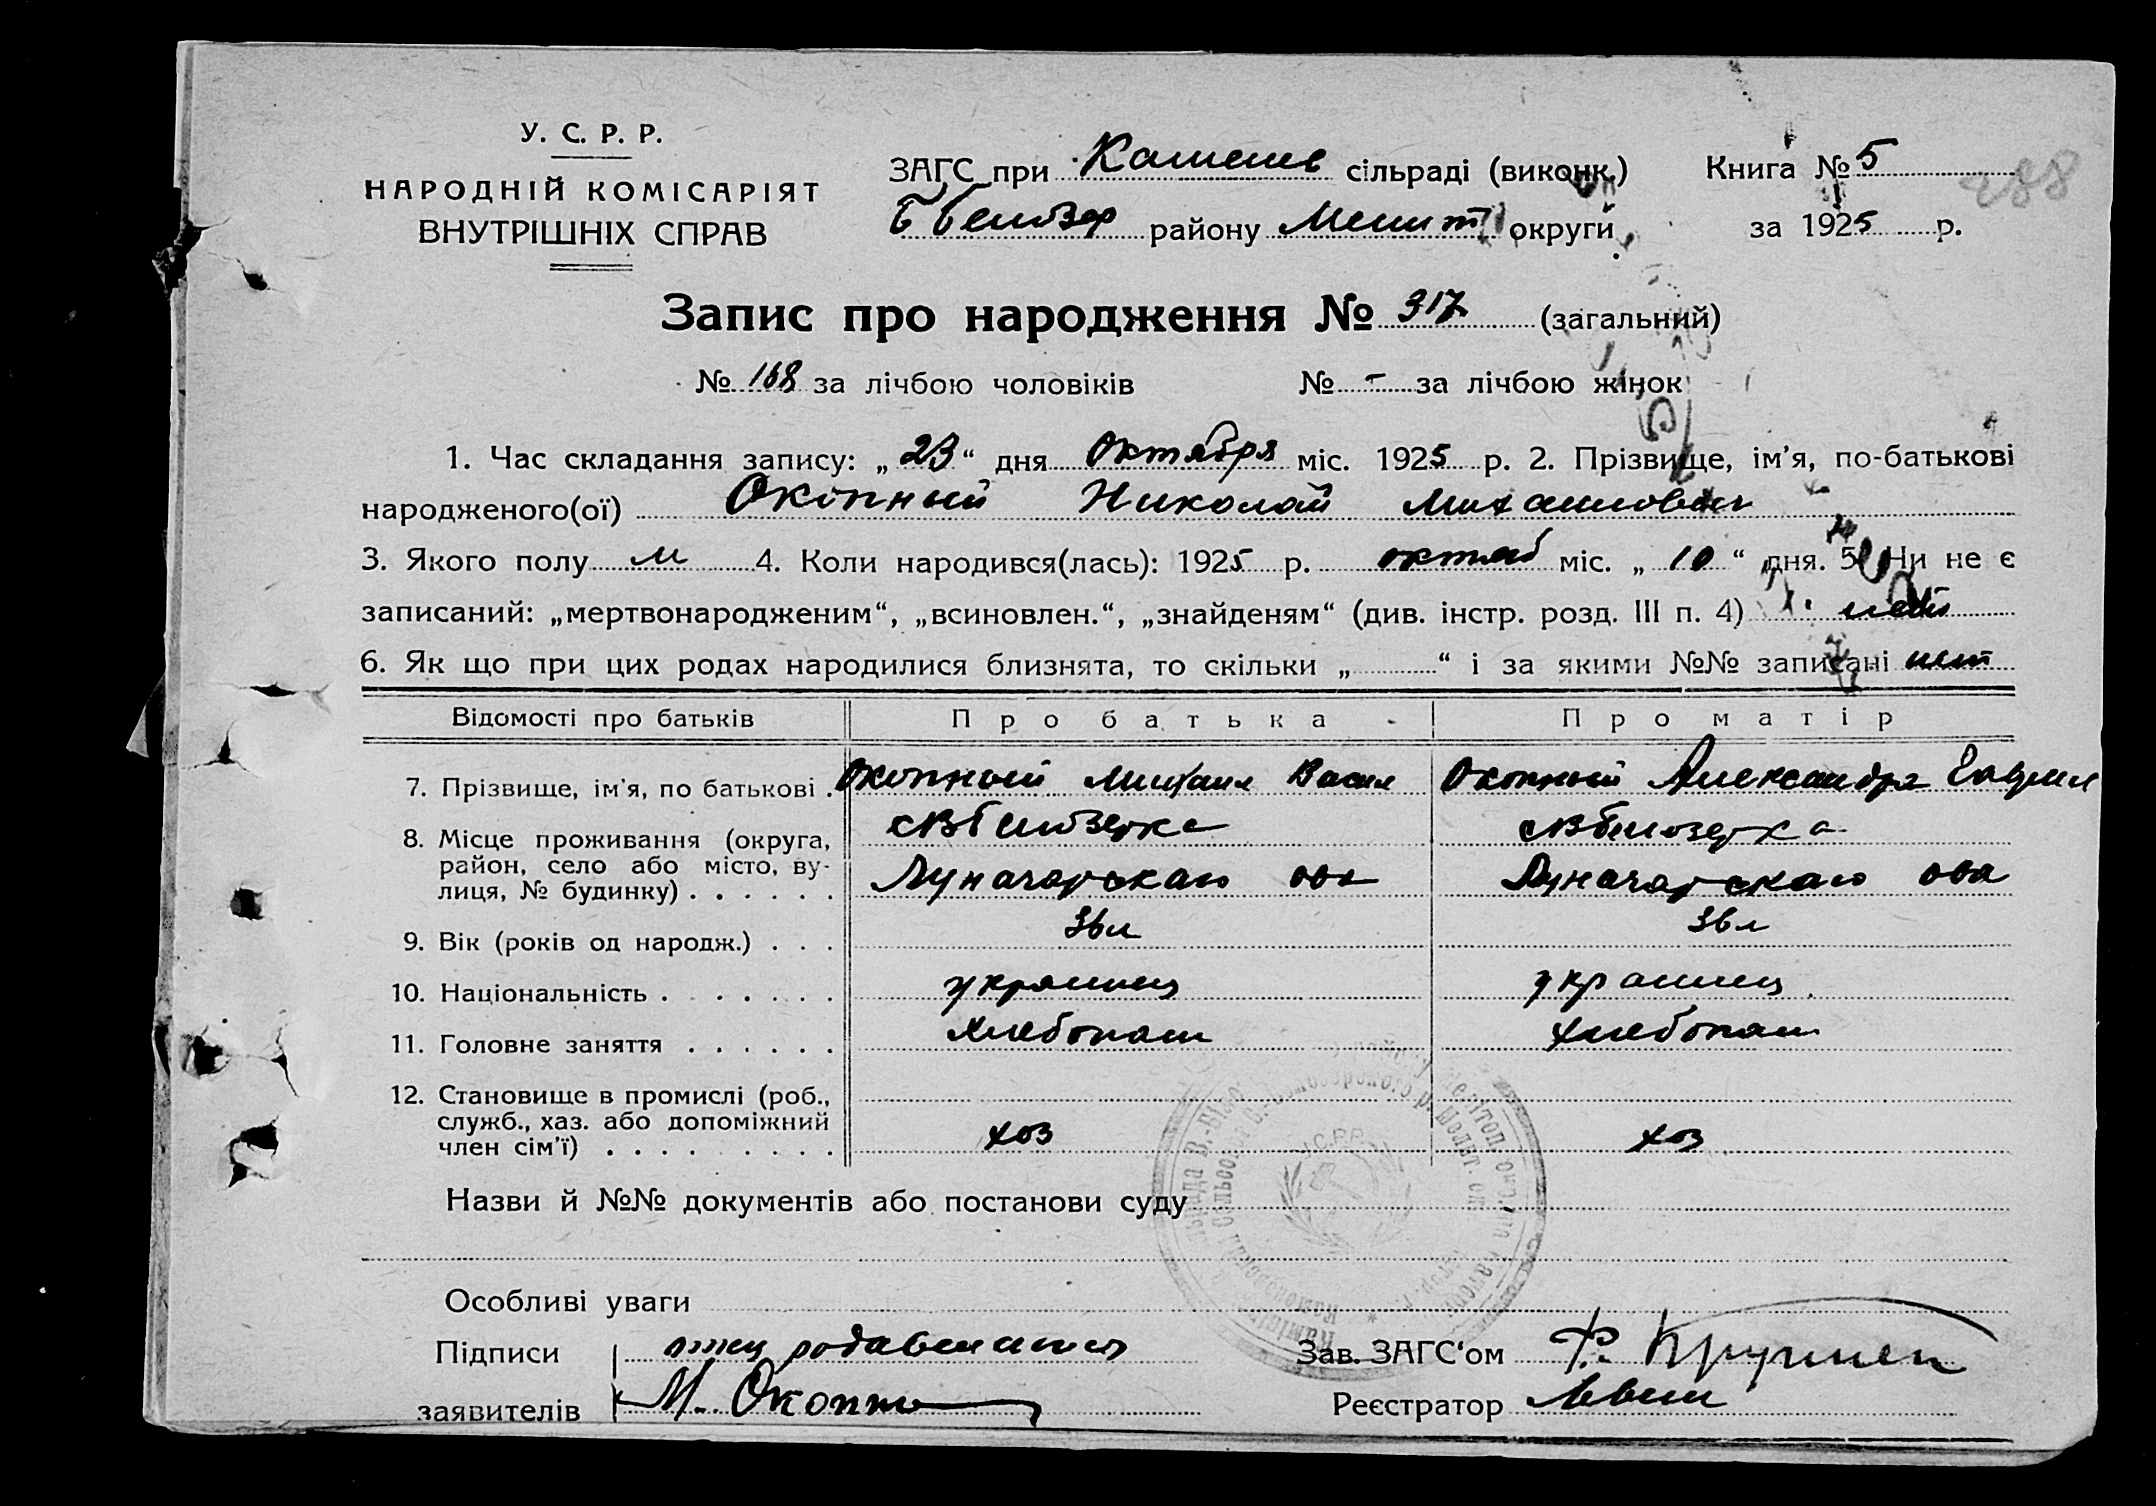 У. С. Р. Р.
НАРОДНІЙ КОМІСАРІЯТ
ВНУТРІШНІХ СПРАВ
ЗАГС при сільраді (виконк.)
району Мелит округи
Книга № 5
за 1925 р.
288
Запис про народження № 317 (загальний)
№ 168 за лічбою чоловіків № - за лічбою жінок
1. Час складання запису: „23“ дня Октября міс. 1925 р. 2. Прізвище, ім'я, по-батькові
народженого(ої) Окопный Николай Михаилович
3. Якого полу м 4. Коли народився(лась): 1925 р. октяб міс. „10“ дня. 5. Чи не є
записаний: „мертвонародженим“, „всиновлен.“, „знайденям“ (див. інстр. розд. III п. 4) нет
6. Як що при цих родах народилися близнята, то скільки „ “ і за якими №№ записані нет
Відомості про батьків Про батька Про матір
7. Прізвище, ім'я, по батькові . Окопный Михаил Васил Окопный Александра Гаврил
8. Місце проживання (округа,
район, село або місто, вулиця, № будинку) . . . . . .
Луначарскаго Луначарскаго
9. Вік (років од народж.) . . . 36л 36л
10. Національність . . . . . . . украинец украинец
11. Головне заняття . . . . . . хлебопаш хлебопаш
12. Становище в промислі (роб.,
служб., хаз. або допоміжний
член сім'ї) . . . . . . . . . хоз хоз
Назви й №№ документів або постанови суду
Особливі уваги
Підписи отец
заявителів М. Окопны
Зав. ЗАГС‘ом
Реєстратор